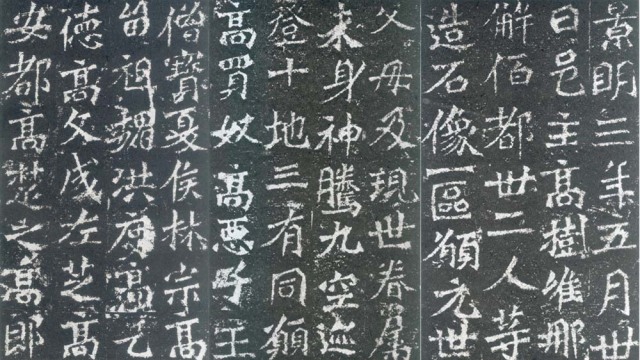 景明三年五月卅
日邑主高樹維那
解佰都卅二人等
造石像一區願元世
父母及現世眷屬
來身神騰九空迹
登十地三有同願
高買奴高惡子王
僧寶夏侯林宗高
留祖魏洪度高乞
德高文成左芝高
安都高楚之高郎